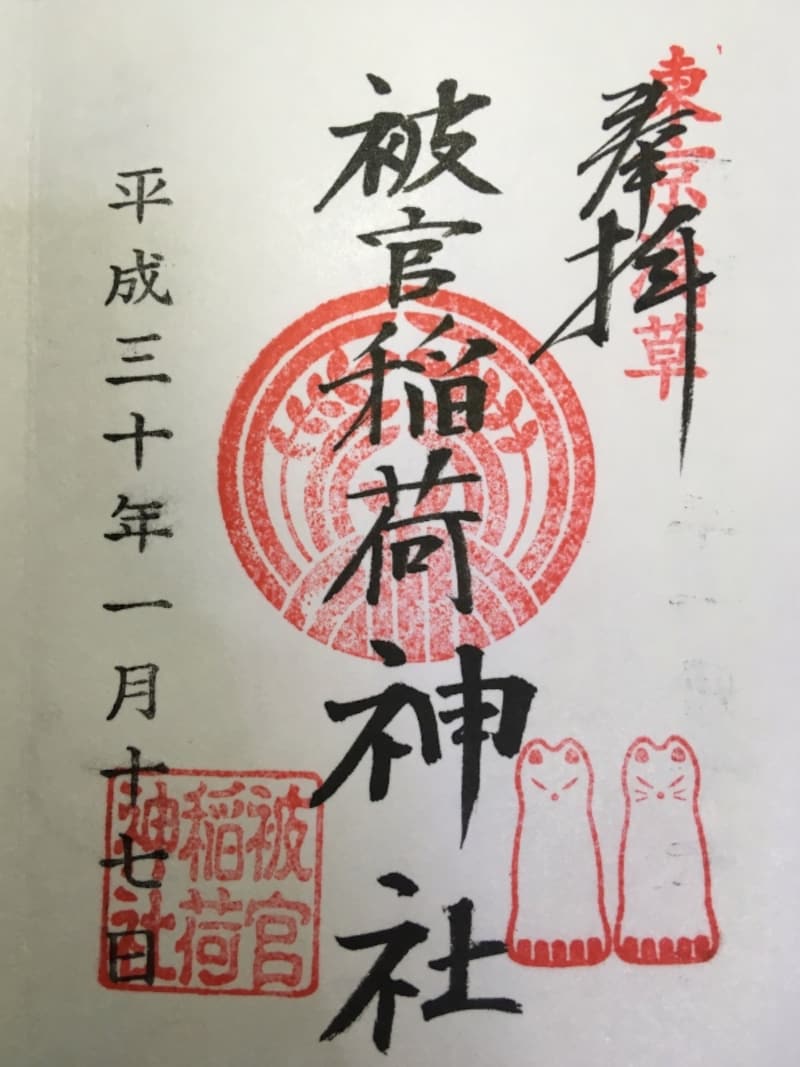 東京浅草
奉拝
被官稲荷神社
平成三十年一月十七日
被官
稲荷
神社